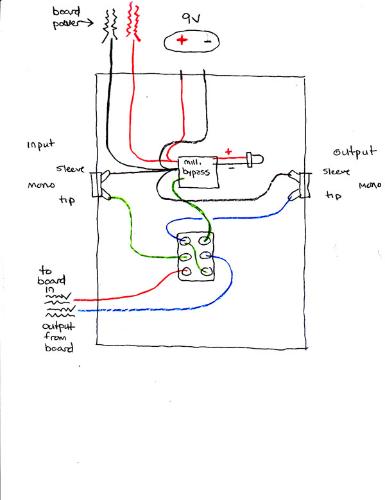 board
power
9V
+ -
mill.
bypass
+
-
Input
sleeve
mono
tip
Output
sleeve
mono
tip
to
board
in
output
from
board